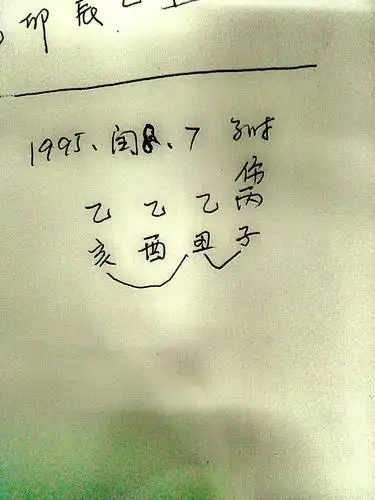 卯 辰
1995、闰8、7 子时
伤
乙 乙 乙 丙
亥 酉 丑 子